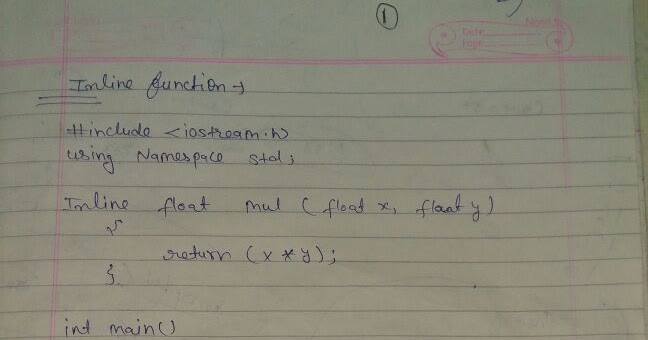 1
Date
Page
Inline function →
#include <iostream.h>
using Namespace std;
Inline float mul ( float x, float y )
{
return (x * y);
}
int main()